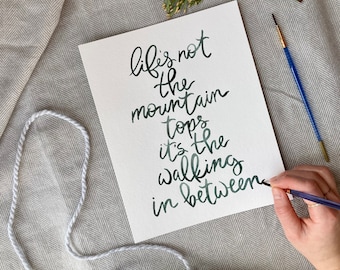 life's not
the
mountain
tops
it's the
walking
in between